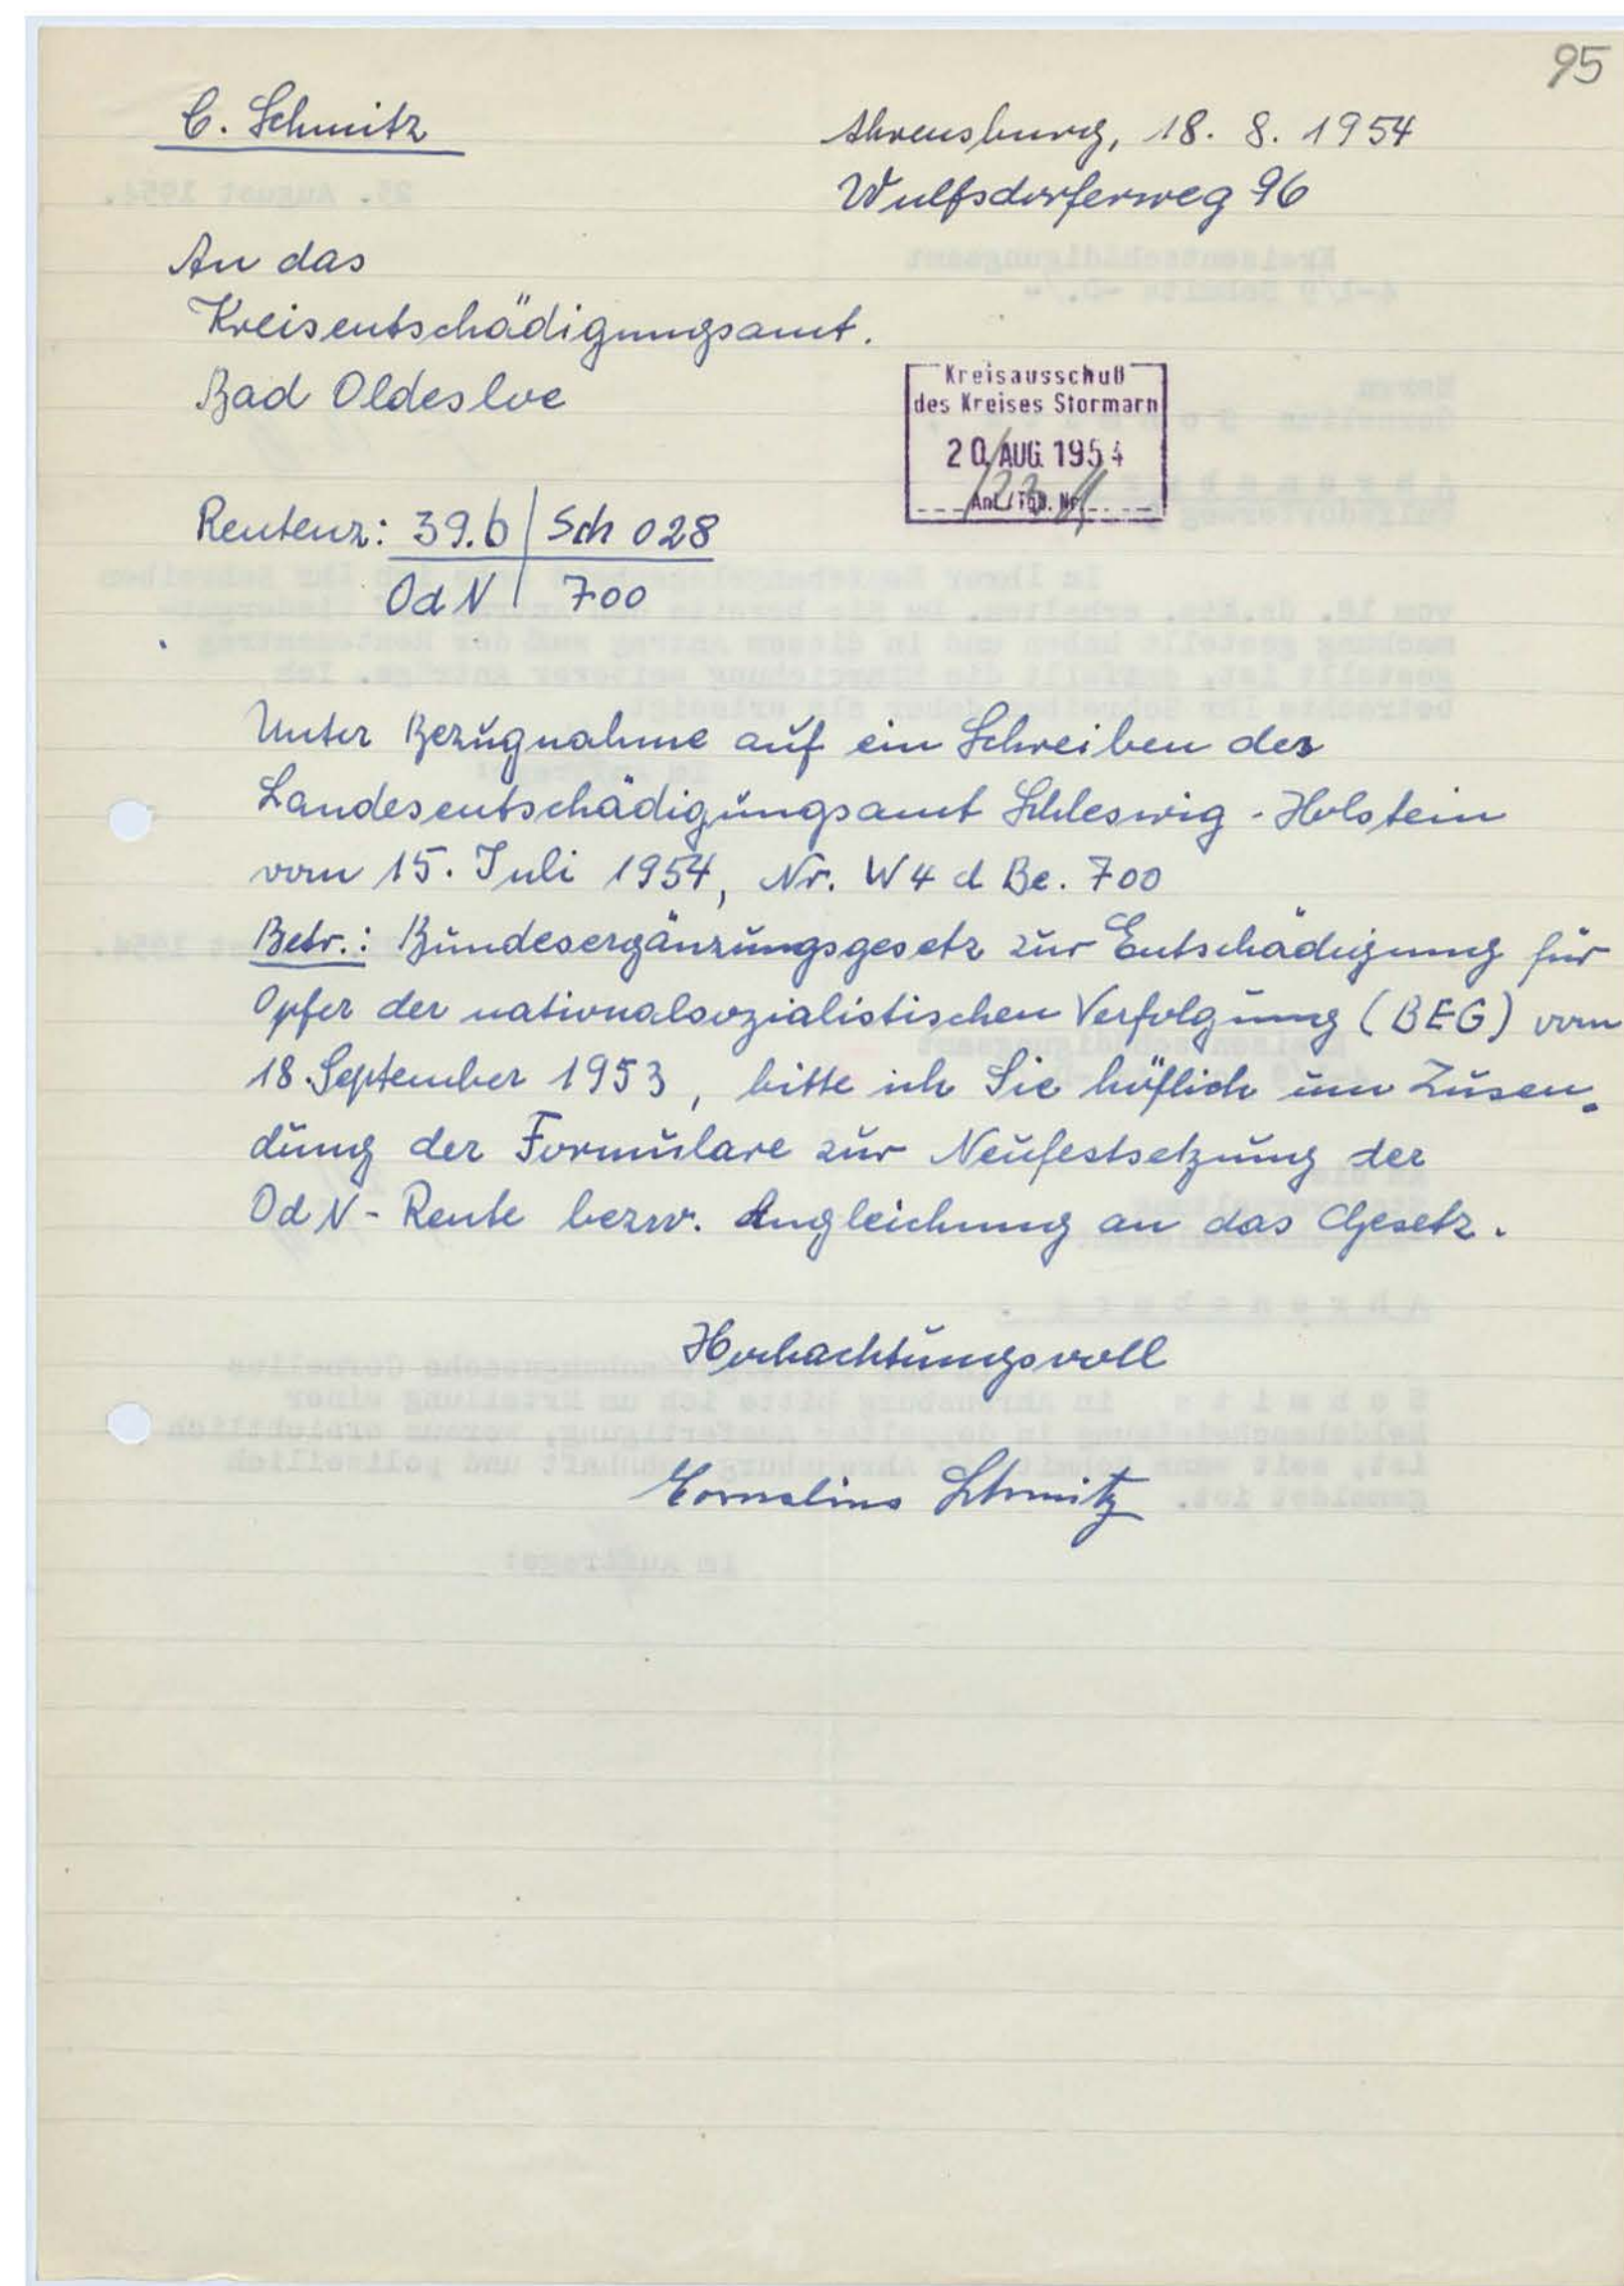 95
C. Schmitz
Ahrensburg, 18. 8. 1954
Wulfsdorferweg 96
An das
Kreisentschädigungsamt.
Bad Oldesloe
Kreisausschuß
des Kreises Stormarn
20. AUG. 1954
Anl./Tgb. Nr.
Rentenz: 39.b / Sch 028
OdN / 700
Unter Bezugnahme auf ein Schreiben des
Landesentschädigungsamt Schleswig-Holstein
vom 15. Juli 1954, Nr. W4 d Be. 700
Betr.: Bundesergänzungsgesetz zur Entschädigung für
Opfer der nationalsozialistischen Verfolgung (BEG) vom
18. September 1953, bitte ich Sie höflich um Zusen-
dung der Formulare zur Neufestsetzung der
OdN-Rente bezw. Angleichung an das Gesetz.
Hochachtungsvoll
Cornelius Schmitz